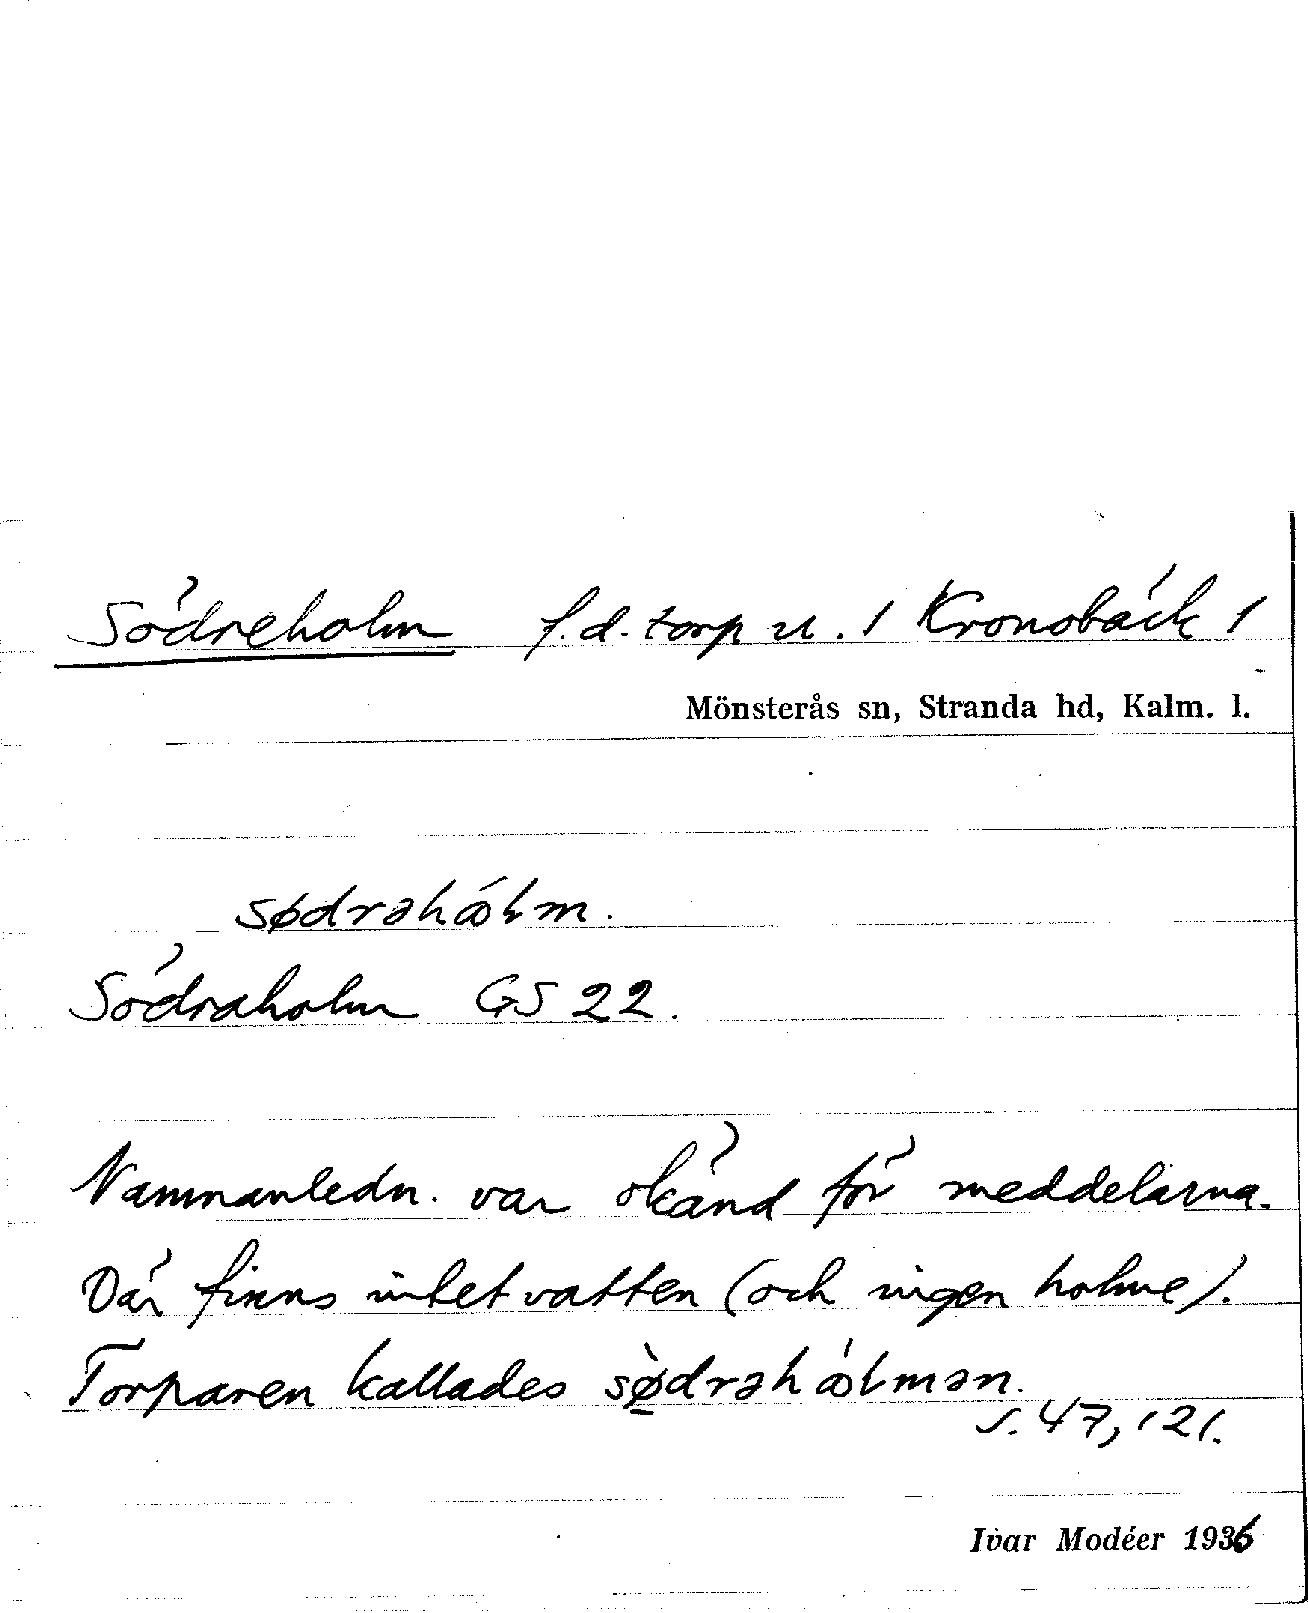 Södreholm f.d. torp u. 1 Kronobäck 1
Mönsterås sn, Stranda hd, Kalm. l.
sødrəhó̤lm.
Södraholm GS 22.
Namnanledn. var okänd för meddelarna.
Där finns intet vatten (och ingen holme).
Torparen kallades sø̀drəhó̤lmən.
s. 47, 121.
Ivar Modéer 1936